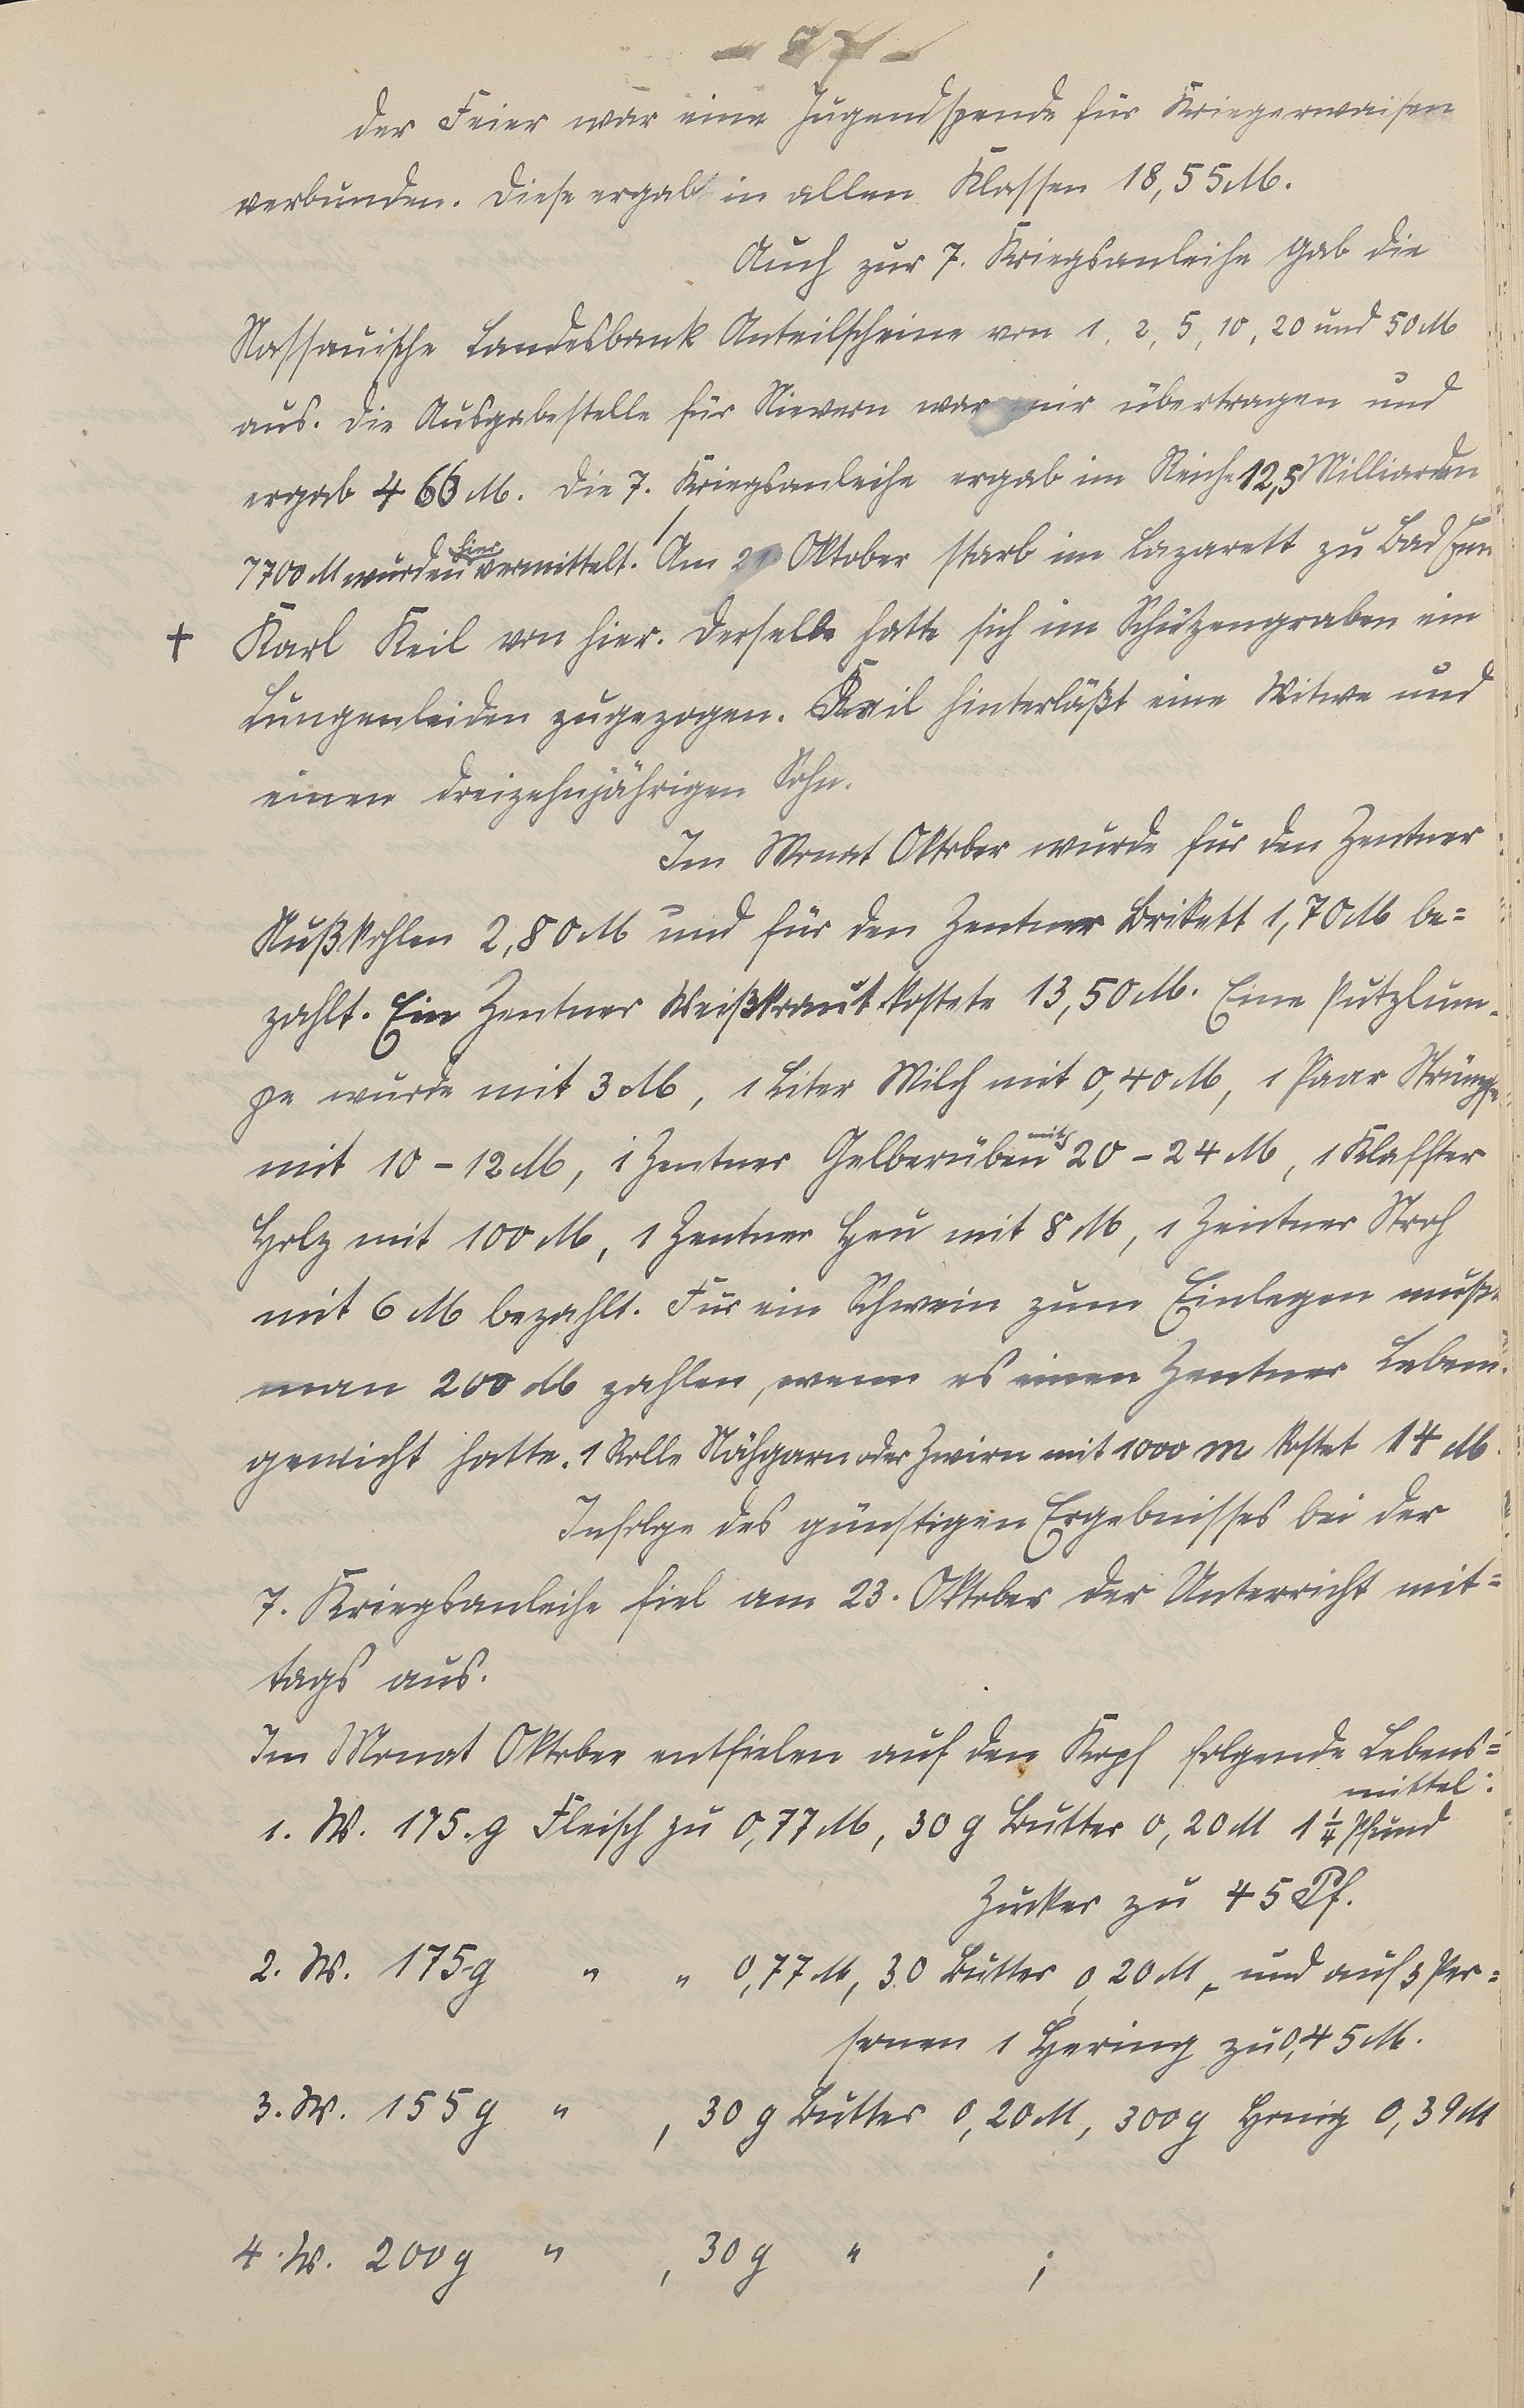 - 87 -
der Feier war eine Jugendspende für Kriegerwaisen
verbunden. Diese ergab in allen Klassen 18,55 M.
Auch zur 7. Kriegsanleihe gab die
Nassauische Landesbank Anteilscheine von 1, 2, 5, 10, 20 und 50 M
aus. Die Ausgabestelle für Nievern war mir übertragen und
ergab 466 M. Die 7. Kriegsanleihe ergab im Reiche 12,5 Milliarden
7700 M wurden hier vermittelt. Am 21 Oktober starb im Lazarett zu Bad Ems
† Karl Keil von hier. Derselbe hatte sich im Schützengraben ein
Lungenleiden zugezogen. Keil hinterläßt eine Witwe und
einen dreizehnjährigen Sohn.
Im Monat Oktober wurde für den Zentner
Nußkohlen 2,80 M und für den Zentner Brikett 1,70 M be=
zahlt. Ein Zentner Weißkraut kostete 13,50 M. Eine Putzlum-
pe wurde mit 3 M, 1 Liter Milch mit 0,40 M, 1 Paar Strümpfe
mit 10 - 12 M, 1 Zentner Gelberüben mit 20 - 24 M, 1 Klafter
Holz mit 100 M, 1 Zentner Heu mit 8 M, 1 Zentner Stroh
mit 6 M bezahlt. Für ein Schwein zum Einlegen mußte
man 200 M zahlen, wenn es einen Zentner Lebend-
gewicht hatte. 1 Rolle Nähgarn oder Zwirn mit 1000 m kostet 14 M.
Infolge des günstigen Ergebnisses bei der
7. Kriegsanleihe fiel am 23. Oktober der Unterricht mit=
tags aus.
Im Monat Oktober entfielen auf den Kopf folgende Lebens=
mittel:
1. W. 175 g Fleisch zu 0,77 M, 30 g Butter 0,20 M 1 1/4 Pfund
Zucker zu 45 Pf.
2. W. 175 g " " 0,77 M, 30 Butter 0,20 M, und auf 3 Per=
sonen 1 Hering zu 0,45 M.
3. W. 155 g " , 30 g Butter 0,20 M, 300 g Honig 0,39 M
4. W. 200 g " , 30 g " ;